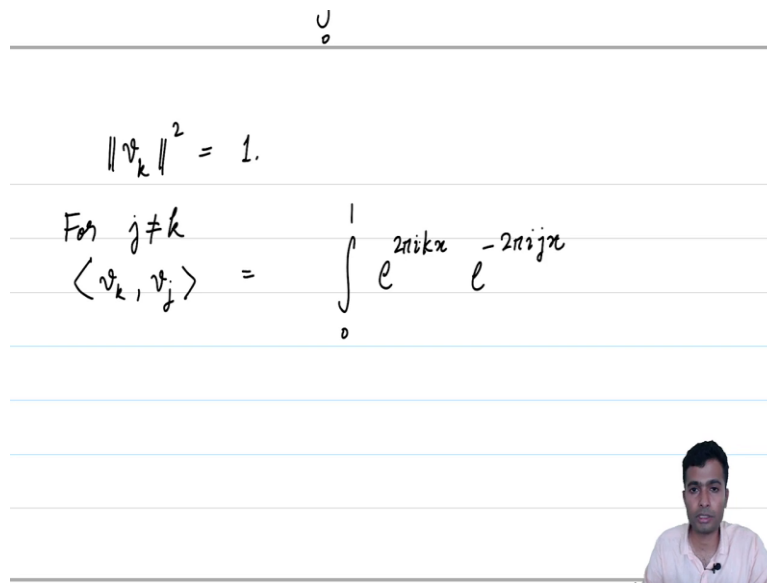 ∫₀
‖v_k‖² = 1.
For j ≠ k
⟨v_k, v_j⟩ = ∫₀¹ e^{2πikx} e^{-2πijx}